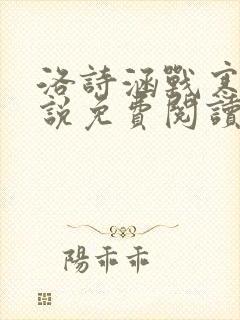 洛詩涵戰寒
說免費閱讀
陽乖乖